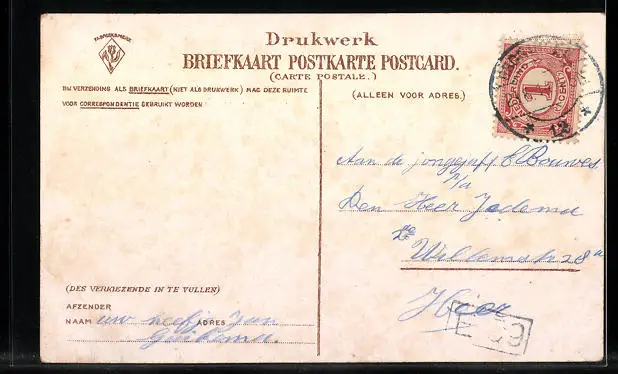 FABRIEKSMERK
Drukwerk
BRIEFKAART POSTKARTE POSTCARD.
(CARTE POSTALE.)
BIJ VERZENDING ALS BRIEFKAART (NIET ALS DRUKWERK) MAG DEZE RUIMTE
VOOR CORRESPONDENTIE GEBRUIKT WORDEN
(ALLEEN VOOR ADRES.)
NEDERLAND
1
CENT
12
Aan de jongejuff C Bouwes
p/a
Den Heer Jedema
2e Willemstr 28a
Hier
(DES VERKIEZENDE IN TE VULLEN)
AFZENDER
NAAM uw neefje ADRES Jan